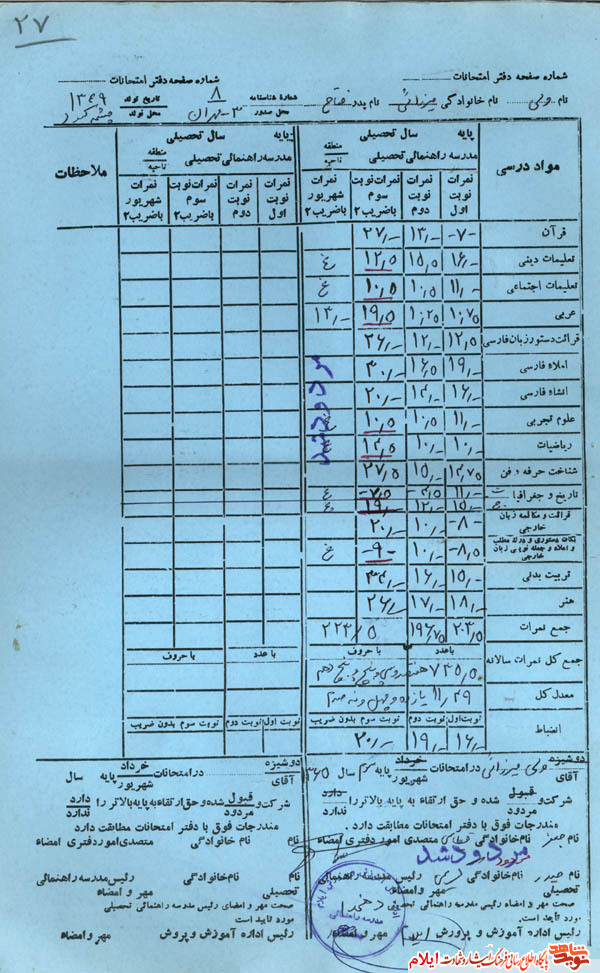 ۲۷
شماره صفحه دفتر امتحانات
شماره صفحه دفتر امتحانات
نام ولی نام خانوادگی میرزائی نام پدر فتاح شماره شناسنامه ۸ تاریخ تولد ۱۳۴۹
محل صدور تهران محل تولد
مواد درسی
پایه سال تحصیلی
مدرسه راهنمائی تحصیلی منطقه ناحیه
نمرات نوبت اول
نمرات نوبت دوم
نمرات نوبت سوم باضریب ۲
نمرات شهریور باضریب ۲
پایه سال تحصیلی
مدرسه راهنمائی تحصیلی منطقه ناحیه
نمرات نوبت اول
نمرات نوبت دوم
نمرات نوبت سوم باضریب ۲
نمرات شهریور باضریب ۲
ملاحظات
قرآن ۷- ۱۳/- ۲۷/-
تعلیمات دینی ۱۶/- ۱۵/۵ ۱۲/۵ غ
تعلیمات اجتماعی ۱۱/- ۱۰/۵ ۱۰/۵ غ
عربی ۱۰/۷۵ ۱۰/۲۵ ۱۹/۵ ۱۳/-
قرائت دستور زبان فارسی ۱۲/۵ ۱۲/- ۲۶/-
املاء فارسی ۱۹/- ۱۶/۵ ۳۰/-
انشاء فارسی ۱۶/- ۱۴/- ۲۰/-
علوم تجربی ۱۱/- ۱۰/۵ ۱۰/۵
ریاضیات ۱۰/- ۱۰/- ۱۴/۵
مردود شد
شناخت حرفه و فن ۱۴/۷۵ ۱۵/- ۲۷/۵
تاریخ و جغرافیا ت ۱۱/- ۷/۵ غ
ج ۱۵/- ۱۲/- ۱۹/- غ
قرائت و مکالمه زبان خارجی ۸- ۱۰/- ۲۰/-
نکات دستوری و درک مطلب و املاء و جمله نویسی زبان خارجی ۸/۵ ۱۰/- ۹- غ
تربیت بدنی ۱۵/- ۱۶/- ۳۴/-
هنر ۱۸/- ۱۷/- ۲۶/-
جمع نمرات ۲۰۳/۵ ۱۹۶/۷۵ ۲۲۳/۵
باعدد با حروف باعدد با حروف
جمع کل نمرات سالانه ۷۳۵/۵
معدل کل ۱۱/۴۹ یازده و چهل و نه صدم
نوبت اول نوبت دوم نوبت سوم بدون ضریب نوبت اول نوبت دوم نوبت سوم بدون ضریب
انضباط ۱۶/- ۱۹/- ۲۰/-
دوشیزه آقای ولی میرزائی در امتحانات خرداد شهریور پایه سوم سال ۱۳۶۵
شرکت و قبول مردود شده و حق ارتقاء به پایه بالاتر را دارد ندارد
مندرجات فوق با دفتر امتحانات مطابقت دارد.
نام نام خانوادگی متصدی امور دفتری امضاء
مردود شد
نام حیدر نام خانوادگی رئیس مدرسه راهنمائی تحصیلی مهر و امضاء
صحت مهر و امضاء رئیس مدرسه راهنمائی تحصیلی مورد تأیید است.
رئیس اداره آموزش و پرورش مهر و امضاء
دوشیزه آقای در امتحانات خرداد شهریور پایه سال
شرکت و قبول مردود شده و حق ارتقاء به پایه بالاتر را دارد ندارد
مندرجات فوق با دفتر امتحانات مطابقت دارد.
نام نام خانوادگی متصدی امور دفتری امضاء
نام نام خانوادگی رئیس مدرسه راهنمائی تحصیلی مهر و امضاء
صحت مهر و امضاء رئیس مدرسه راهنمائی تحصیلی مورد تأیید است
رئیس اداره آموزش و پرورش مهر و امضاء
نوید شاهد پایگاه اطلاع رسانی فرهنگ ایثار و شهادت ایلام